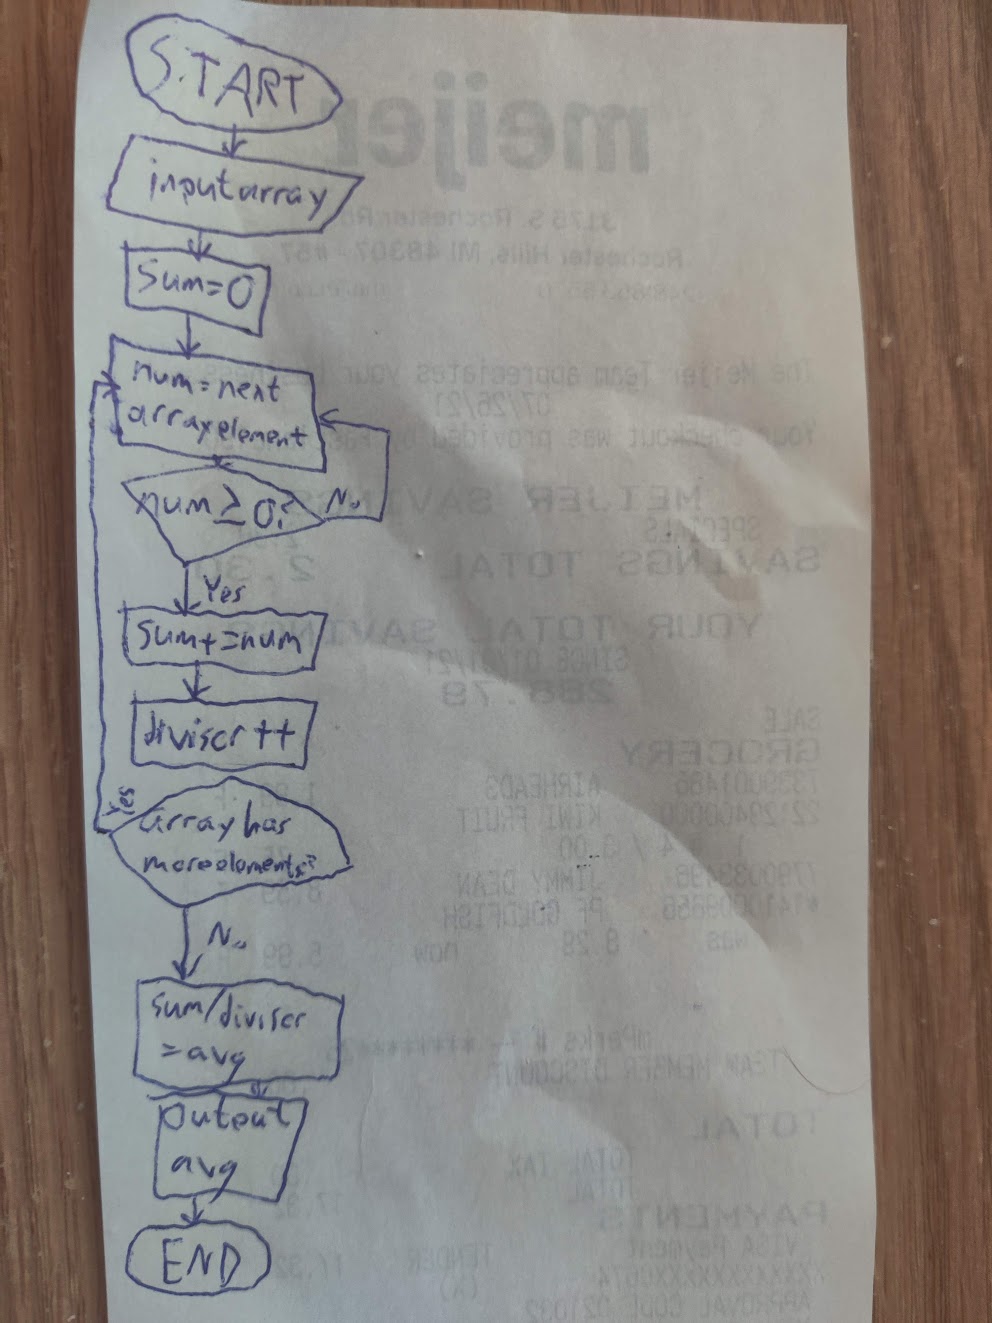 START
input array
Sum=0
num = next
array element
num ≥ 0?
No
Yes
Sum+=num
diviser ++
Yes
array has
more elements?
No
sum/diviser
= avg
output
avg
END
meijer
3175 S. Rochester Rd
Rochester Hills, MI 48307 - #67
The Meijer Team appreciates your business
07/26/21
Your checkout was provided by
MEIJER SAVINGS
SPECIALS
SAVINGS TOTAL 2.30
YOUR TOTAL SAVINGS
SINCE 01/01/21
288.79
SALE
GROCERY
AIRHEADS
KIWI FRUIT
JIMMY DEAN
PF GOLDFISH
was 8.28 now 5.99
mPerks #
TEAM MEMBER DISCOUNT
TOTAL
TOTAL TAX
TOTAL
PAYMENTS
VISA Payment TENDER 17.32
APPROVAL CODE 021032